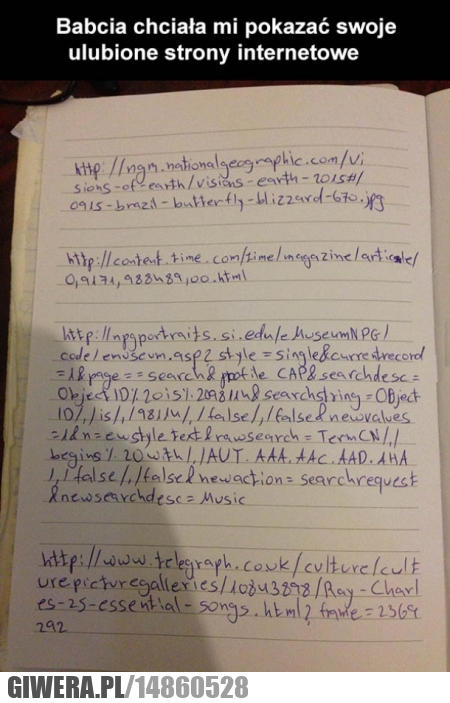 Babcia chciała mi pokazać swoje
ulubione strony internetowe
http://ngm.nationalgeographic.com/vi
sions-of-earth/visions-earth-2015#/
0915-brazil-butterfly-blizzard-670.jpg
http://content.time.com/time/magazine/article/
0,9171,988489,00.html
http://npgportraits.si.edu/eMuseumNPG/
code/emuseum.asp? style=single&currentrecord
=1&page==search& profile CAP& searchdesc=
Object ID%20is%20 & searchstring=OBject
ID/,/is/,/98114/,/false/,/false&newvalues
=1&n=ewstyle text&rawsearch=TermCN/,/
begins%20with/,/AUT.AAA.AAC.AAD.AHA
/,/false/,/false&newaction=searchrequest
&newsearchdesc=Music
http://www.telegraph.co.uk/culture/cult
urepicturegalleries/10843898/Ray-Charl
es-25-essential-songs.html? frame=2369
292
GIWERA.PL/14860528